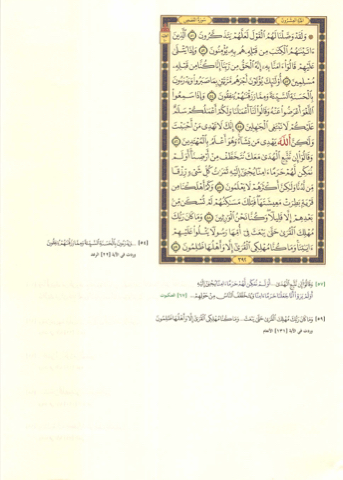 سورة القصص
۞ وَلَقَدْ وَصَّلْنَا لَهُمُ الْقَوْلَ لَعَلَّهُمْ يَتَذَكَّرُونَ ٥١ الَّذِينَ
ءَاتَيْنَٰهُمُ الْكِتَٰبَ مِن قَبْلِهِ هُم بِهِ يُؤْمِنُونَ ٥٢ وَإِذَا يُتْلَىٰ
عَلَيْهِمْ قَالُوا ءَامَنَّا بِهِ إِنَّهُ الْحَقُّ مِن رَّبِّنَا إِنَّا كُنَّا مِن قَبْلِهِ
مُسْلِمِينَ ٥٣ أُولَٰئِكَ يُؤْتَوْنَ أَجْرَهُم مَّرَّتَيْنِ بِمَا صَبَرُوا وَيَدْرَءُونَ
بِالْحَسَنَةِ السَّيِّئَةَ وَمِمَّا رَزَقْنَٰهُمْ يُنفِقُونَ ٥٤ وَإِذَا سَمِعُوا
اللَّغْوَ أَعْرَضُوا عَنْهُ وَقَالُوا لَنَا أَعْمَٰلُنَا وَلَكُمْ أَعْمَٰلُكُمْ سَلَٰمٌ
عَلَيْكُمْ لَا نَبْتَغِي الْجَٰهِلِينَ ٥٥ إِنَّكَ لَا تَهْدِي مَنْ أَحْبَبْتَ
وَلَٰكِنَّ اللَّهَ يَهْدِي مَن يَشَاءُ وَهُوَ أَعْلَمُ بِالْمُهْتَدِينَ ٥٦
وَقَالُوا إِن نَّتَّبِعِ الْهُدَىٰ مَعَكَ نُتَخَطَّفْ مِنْ أَرْضِنَا أَوَلَمْ
نُمَكِّن لَّهُمْ حَرَمًا ءَامِنًا يُجْبَىٰ إِلَيْهِ ثَمَرَٰتُ كُلِّ شَيْءٍ رِّزْقًا
مِّن لَّدُنَّا وَلَٰكِنَّ أَكْثَرَهُمْ لَا يَعْلَمُونَ ٥٧ وَكَمْ أَهْلَكْنَا مِن
قَرْيَةٍ بَطِرَتْ مَعِيشَتَهَا فَتِلْكَ مَسَٰكِنُهُمْ لَمْ تُسْكَن مِّن
بَعْدِهِمْ إِلَّا قَلِيلًا وَكُنَّا نَحْنُ الْوَٰرِثِينَ ٥٨ وَمَا كَانَ رَبُّكَ
مُهْلِكَ الْقُرَىٰ حَتَّىٰ يَبْعَثَ فِي أُمِّهَا رَسُولًا يَتْلُوا عَلَيْهِمْ
ءَايَٰتِنَا وَمَا كُنَّا مُهْلِكِي الْقُرَىٰ إِلَّا وَأَهْلُهَا ظَٰلِمُونَ ٥٩
[٥٤] ... وَيَدْرَءُونَ بِالْحَسَنَةِ السَّيِّئَةَ وَمِمَّا رَزَقْنَٰهُمْ يُنفِقُونَ
وردت في الآية [٢٢] الرعد
[٥٧] وَقَالُوا إِن نَّتَّبِعِ الْهُدَىٰ ... أَوَلَمْ نُمَكِّن لَّهُمْ حَرَمًا ءَامِنًا يُجْبَىٰ إِلَيْهِ
أَوَلَمْ يَرَوْا أَنَّا جَعَلْنَا حَرَمًا ءَامِنًا وَيُتَخَطَّفُ النَّاسُ مِنْ حَوْلِهِمْ ... [٦٧] العنكبوت
[٥٩] وَمَا كَانَ رَبُّكَ مُهْلِكَ الْقُرَىٰ حَتَّىٰ يَبْعَثَ ... وَمَا كُنَّا مُهْلِكِي الْقُرَىٰ إِلَّا وَأَهْلُهَا ظَٰلِمُونَ
وردت في الآية [١٣١] الأنعام